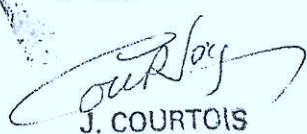 Courtois
J. COURTOIS